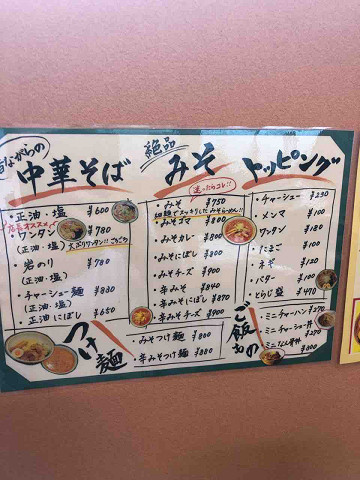 昔ながらの
中華そば
・正油・塩 ¥600
店長オススメ
・ワンタン ¥780
(正油・塩)
・岩のり ¥780
(正油・塩)
・チャーシュー麺 ¥880
(正油・塩)
・正油にぼし ¥650
絶品
みそ
迷ったらコレ!!
・みそ ¥750
・みそゴマ ¥800
・みそカレー ¥800
・みそにぼし ¥800
・みそチーズ ¥900
・辛みそ ¥840
・辛みそにぼし ¥870
・辛みそチーズ ¥900
つけ麺
・みそつけ麺 ¥800
・辛みそつけ麺 ¥880
トッピング
・チャーシュー ¥250
・メンマ ¥100
・ワンタン ¥180
・たまご ¥100
・ネギ ¥120
・バター ¥100
ご飯もの
・ミニチャーハン ¥270
・ミニチャーシュー丼 ¥250